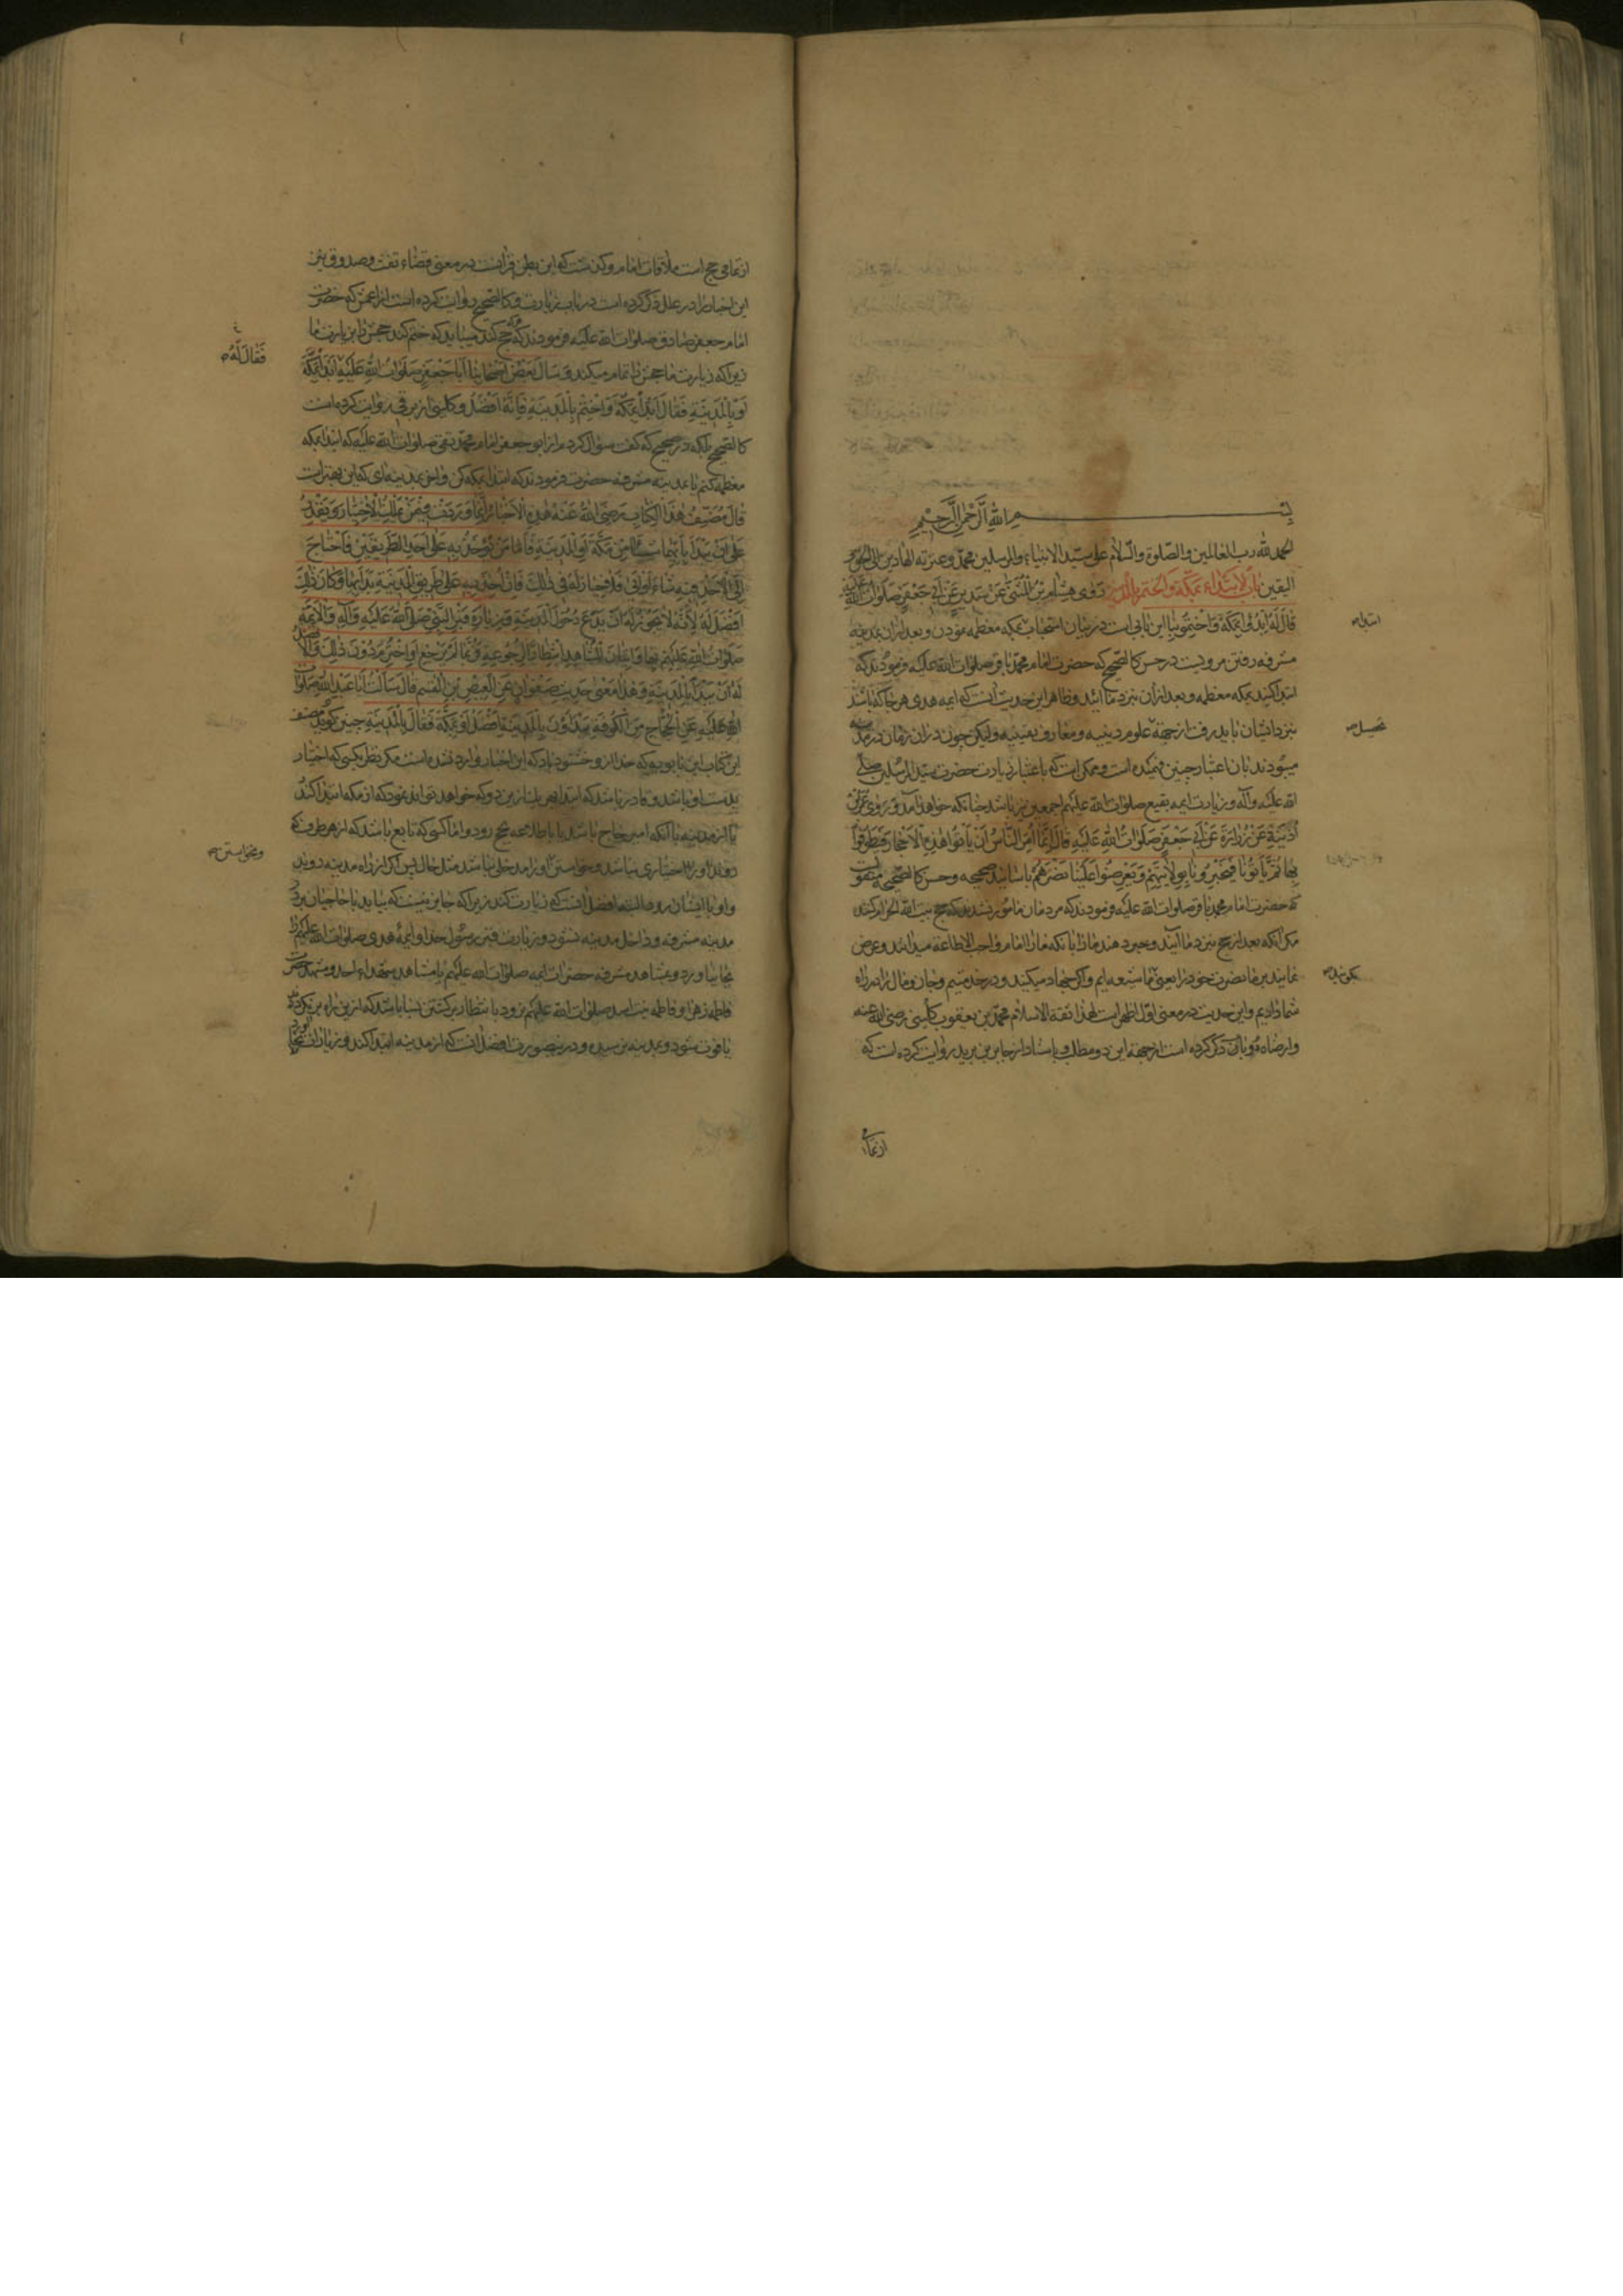 بسم الله الرحمن الرحیم
الحمد لله رب العالمین و الصلوة والسلام علی سید الانبیاء والمرسلین محمد وعترته الهادین الی الحق و
الیقین باب الابتداء بمکة والختم بالمدینة روی هشام بن المثنی عن سدیر عن ابی جعفر صلوات الله علیه
قال له ابدؤا بمکة واختموا بنا این بابی است در بیان استحباب بمکه معظمه بودن و بعد ازان بمدینه
ابتدا
مشرفه رفتن مرویست در حسن کالصحیح که حضرت امام محمد باقر صلوات الله علیه فرمودند که
ابتدا کنید بمکه معظمه و بعد ازان بنزد ما ائید و ظاهر این حدیث آنست که ایمه هدی هر جا که باشند
بنزد ایشان باید رفت از جهة علوم دینیه و معارف یقینیه ولیکن چون دران زمان در مدینه
تحصیل
میبودند بان اعتبار چنین فهمیده است و ممکن است که باعتبار زیارت حضرت سید المرسلین صلی
الله علیه وآله و زیارت ایمه بقیع صلوات الله علیهم اجمعین نیز باشد چنانکه خواهد آمد و روی عمر بن
اذینة عن زرارة عن ابی جعفر صلوات الله علیه قال انما امر الناس ان یاتوا هذه الاحجار فیطوفوا
بها ثم یاتونا فیخبرونا بولایتهم ویعرضوا علینا نصرهم باسانید صحیحه و حسن کالصحیحه منقولست
که حضرت امام محمد باقر صلوات الله علیه فرمودند که مردمان مامور نشدند که حج بیت الله الحرام کنند
مکر انکه بعد از حج بنزد ما آیند و خبر دهند ما را بانکه ما را امام واجب الاطاعة میدانند و عرض
نمایند بر ما نصرت خود را یعنی ما شیعه ایم و اکر جهاد میکنید در خدمتیم و جان و مال را در راه
شما دادیم و این حدیث در معنی اول اظهر است لهذا ثقة الاسلام محمد بن یعقوب کلینی رضی الله عنه
وارضاه دو باب ذکر کرده است از جهة این دو مطلب و باسناد از جابر بن یزید روایت کرده است که
از تمامی
از تمامی حج است ملاقات امام و کذشت که این بطن قرانست در معنی قضاء تفث و صدوق نیز
این اخبار را در علل ذکر کرده است در باب زیارت و کالصحیح روایت کرده است از اعمش که حضرت
امام جعفر صادق صلوات الله علیه فرمودند که هر که حج کند میباید که ختم کند حجش را بزیارت ما
زیرا که زیارت ما حجش را تمام میکند و سال بعض اصحابنا ابا جعفر صلوات الله علیه ابدأ بمکة
فقال له
او بالمدینة فقال ابدأ بمکة واختم بالمدینة فانه افضل و کلینی از برقی روایت کرده است
کالصحیح بلکه در صحیح که کفت سؤال کردم از ابو جعفر امام محمد تقی صلوات الله علیه که ابتدا بمکه
معظمه کنم یا بمدینه مشرفه حضرت فرمودند که ابتدا بمکه کن و اخر بمدینه ای که این بهتر است
قال مصنف هذا الکتاب رضی الله عنه هذه الاخبار انما وردت فیمن یملک الاختیار و یقدر
علی ان یبدأ بایهما شاء من مکة او المدینة فاما من یؤخذ به علی احد الطریقین فاحتاج
الی الاخذ فیه شاء او ابی فلا خیار له فی ذلک فان اخذ به علی طریق المدینة بدأ بها و کان ذلک
افضل له لانه لا یجوز له ان یدع دخول المدینة و زیارة قبر النبی صلی الله علیه وآله والائمة
صلوات الله علیهم بها واتیان المشاهد انتظارا لرجوعه و ربما لم یرجع او اخترم دون ذلک والافضل
له ان یبدأ بالمدینة و هذا معنی حدیث صفوان عن العیص بن القسم قال سالت ابا عبد الله صلوات
الله علیه عن الحجاج من الکوفة یبدؤن بالمدینة افضل او بمکة فقال بالمدینة چنین کوید مصنف
این کتاب ابن بابویه که خدا ازو خشنود باد که این اخبار وارد نشده است مکر نظر بکسی که اختیار
بدست او باشد و قادر باشد که ابتدا بهر یک ازین دو که خواهد تواند نمود که از مکه ابتدا کند
یا از مدینه یا آنکه امیر حاج باشد یا باطلاعه بحج رود و اما کسی که تابع باشد که از هر طرف که
روند او را اختیاری نباشد و خواستن او را مدخلی نباشد مثل حال پس اکر از راه مدینه روند
ونخواستن
و او با ایشان رود البته افضل آنست که زیارت کند زیرا که جایز نیست که بیاید با حاجیان بر در
مدینه مشرفه و داخل مدینه نشود و زیارت قبر رسول خدا و ایمه هدی صلوات الله علیهم را
بجا نیاورد و بمشاهد مشرفه حضرات ایمه صلوات الله علیهم یا مشاهد شهداء احد و مشهد حضرت
فاطمه زهرا و فاطمه بنت اسد صلوات الله علیهم نرود بانتظار برکشتن بسا باشد که ازین راه برنکردد
یا فوت شود و بمدینه نرسیده و درینصورت افضل آنست که از مدینه ابتدا کند و زیارات بجا